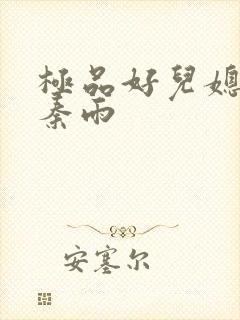 極品好兒媳
秦雨
安塞尔